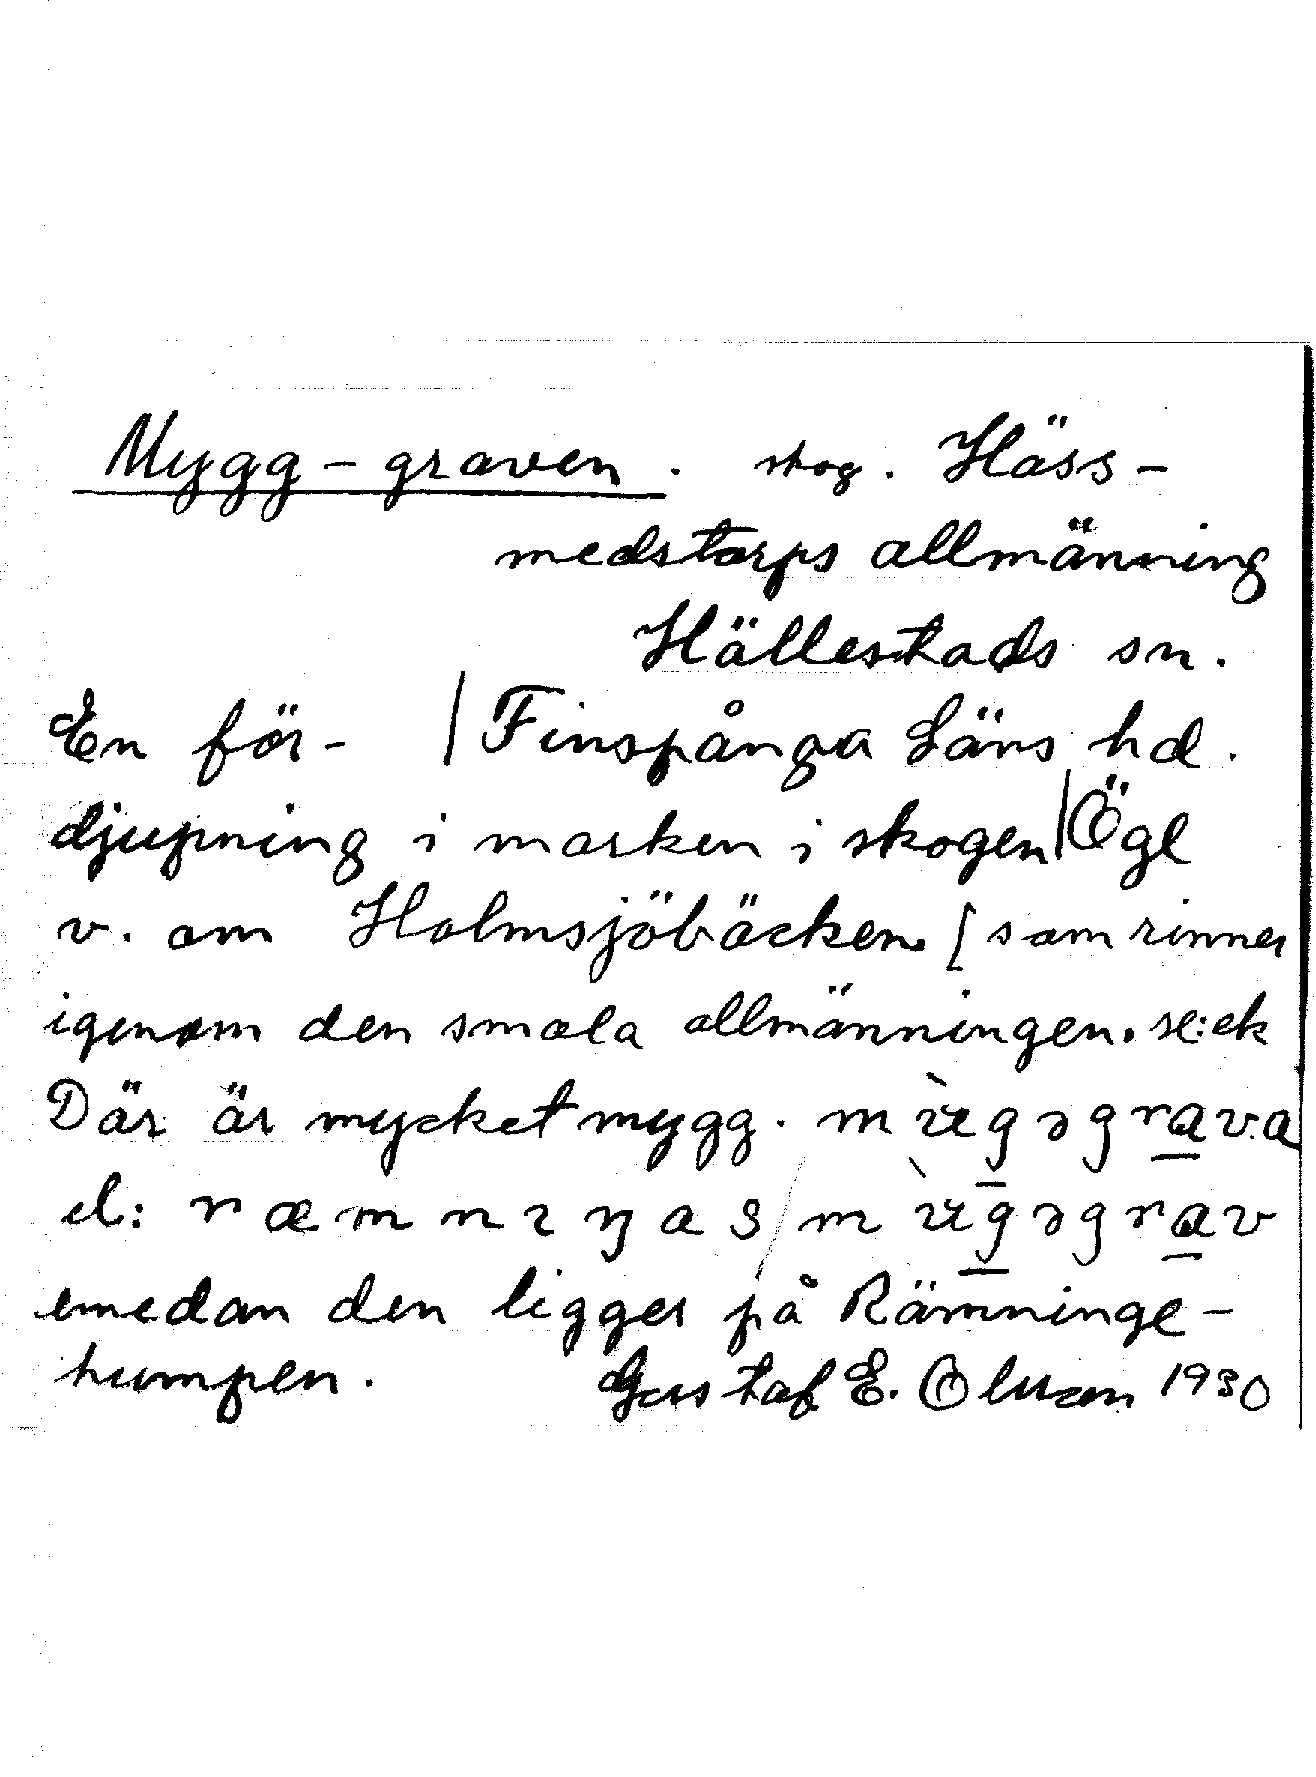 Mygg-graven. skog. Häss-
medstorps allmänning
Hällestads sn.
En för- | Finspånga Läns hd.
djupning i marken i skogen | Ögl
v. om Holmsjöbäcken. [som rinner
igenom den smala allmänningen.
Där är mycket mygg. m
el: ræmnıŋas m
emedan den ligger på Rämninge-
humpen. Gustaf E. Olsson 1930